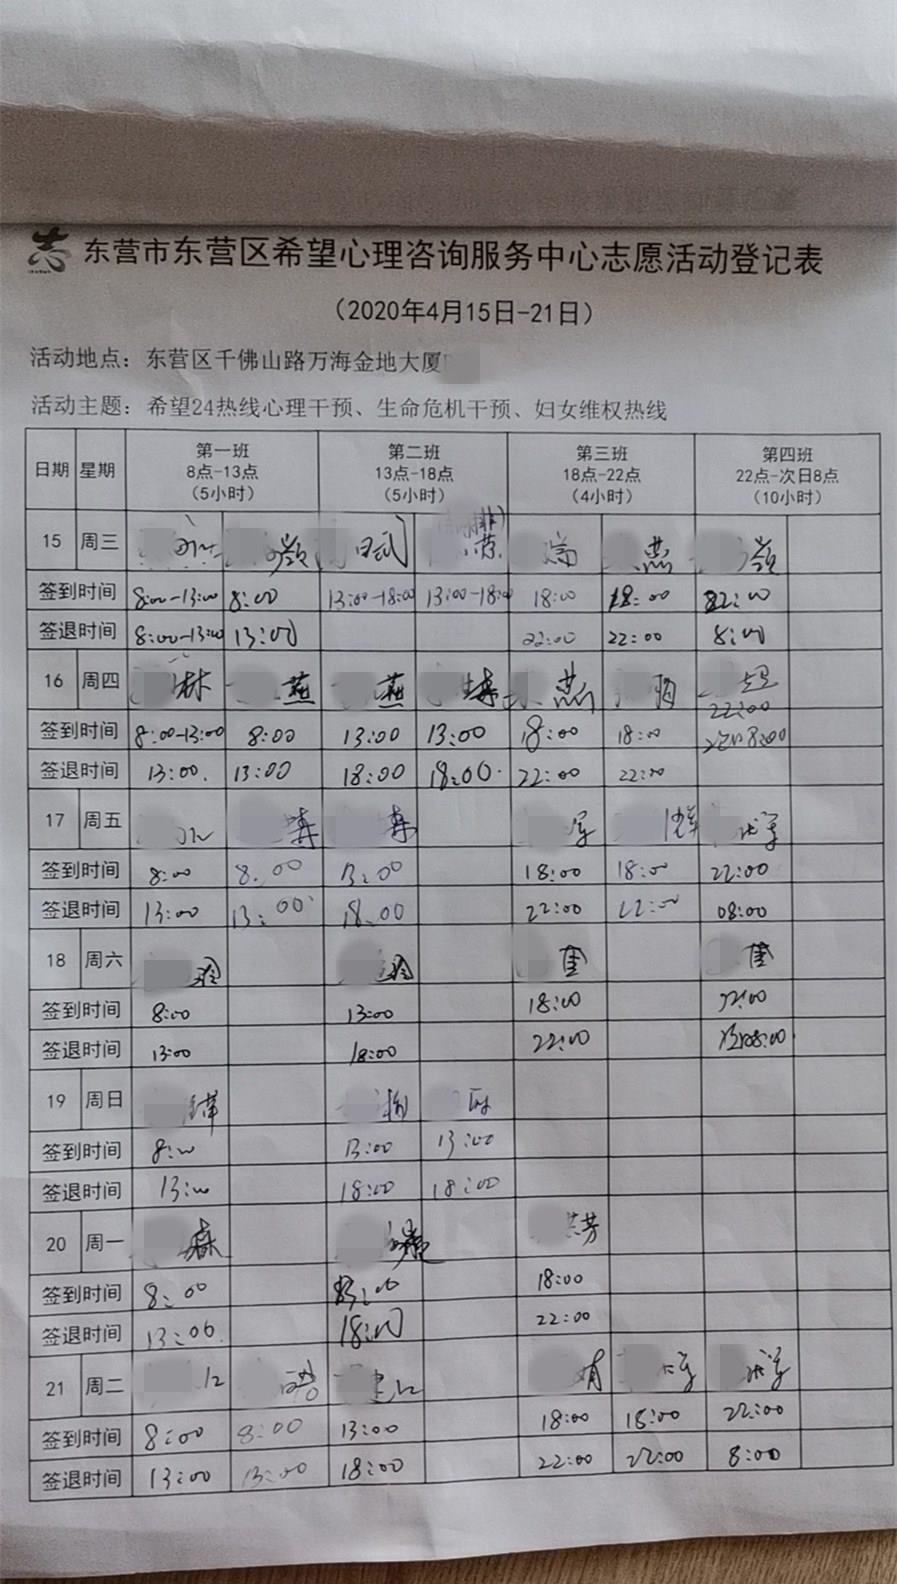 志
东营市东营区希望心理咨询服务中心志愿活动登记表
（2020年4月15日-21日）
活动地点：东营区千佛山路万海金地大厦
活动主题：希望24热线心理干预、生命危机干预、妇女维权热线
日期 星期 第一班 8点-13点 （5小时） 第二班 13点-18点 （5小时） 第三班 18点-22点 （4小时） 第四班 22点-次日8点 （10小时）
15 周三 岭 燕 岭
签到时间 8:00-13:00 8:00 13:00-18:00 13:00-18:00 18:00 18:00 22:00
签退时间 8:00-13:00 13:00 22:00 22:00 8:00
16 周四 林 燕 燕 燕
22:00
签到时间 8:00-13:00 8:00 13:00 13:00 18:00 18:00 次日8:00
签退时间 13:00. 13:00 18:00 18:00. 22:00 22:00
17 周五 军 军
签到时间 8:00 8:00 13:00 18:00 18:00 22:00
签退时间 13:00 13:00 18:00 22:00 22:00 08:00
18 周六 玲 玲 奎 奎
签到时间 8:00 13:00 18:00 22:00
签退时间 13:00 18:00 22:00 次日8:00
19 周日
签到时间 8:00 13:00 13:00
签退时间 13:00 18:00 18:00
20 周一 森 芳
签到时间 8:00 13:00 18:00
签退时间 13:00. 18:00 22:00
21 周二 江 军 军
签到时间 8:00 8:00 13:00 18:00 18:00 22:00
签退时间 13:00 13:00 18:00 22:00 22:00 8:00